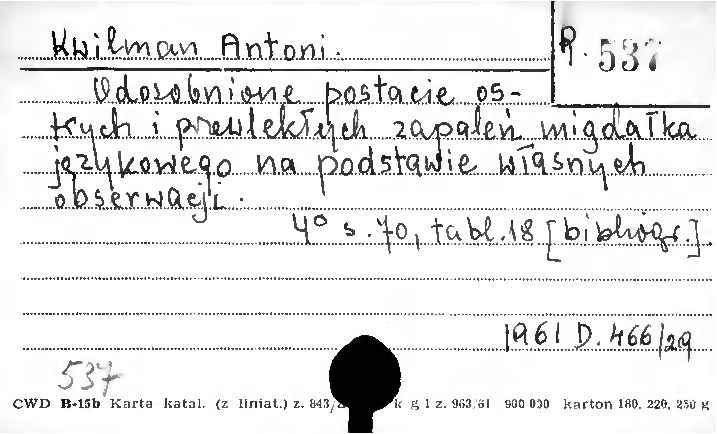 Kwilman Antoni.
R. 537
Odosobnione postacie os-
trych i przewlekłych zapaleń migdałka
językowego na podstawie własnych
obserwacji.
4° s. 70, tabl. 18 [bibliogr.].
1961 D. 466/29
537
CWD B-15b Karta katal. (z liniat.) z. 843/ k g 1 z. 963/61 900 000 karton 180, 220, 250 g